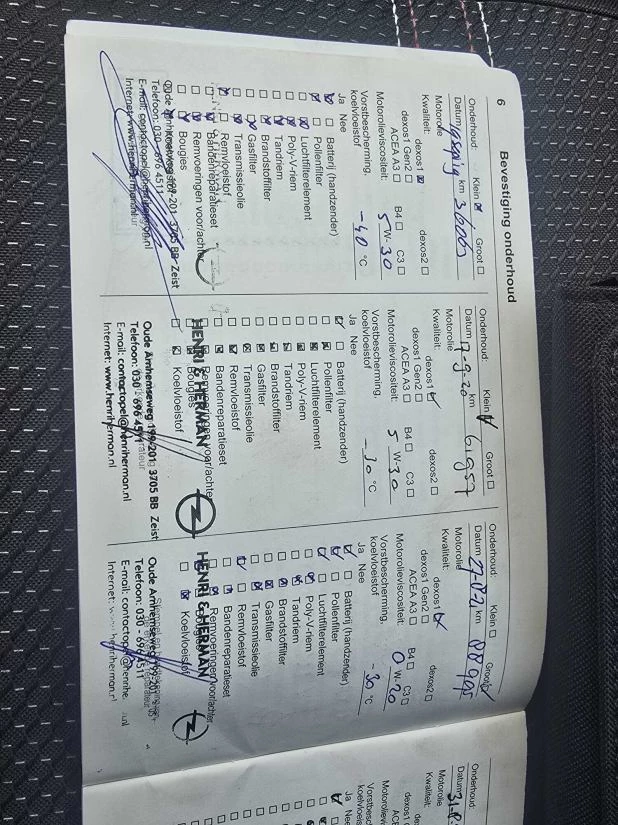 6
Bevestiging onderhoud
Onderhoud: Klein ☒ Groot ☐
Datum km
Motorolie
Kwaliteit: dexos1 ☒ dexos2 ☐
dexos1 Gen2 ☐ B4 ☐ C3 ☐
ACEA A3 ☐
Motorolieviscositeit: 5 W-30
Vorstbescherming,
koelvloeistof -40 °C
Ja Nee
Batterij (handzender)
Pollenfilter
Luchtfilterelement
Poly-V-riem
Tandriem
Brandstoffilter
Gasfilter
Transmissieolie
Remvloeistof
Bandenreparatieset
Remvoeringen voor/achter
Bougies
Oude Arnhemseweg 199-201 3705 BB Zeist
Telefoon: 030 - 696 4511
E-mail: contactopel@henriherman.nl
Internet: www.henriherman.nl
Onderhoud: Klein ☒ Groot ☐
Datum 7-9-20 km 61957
Motorolie
Kwaliteit: dexos1 ☒ dexos2 ☐
dexos1 Gen2 ☐ B4 ☐ C3 ☐
ACEA A3 ☐
Motorolieviscositeit: 5 W-30
Vorstbescherming,
koelvloeistof -30 °C
Ja Nee
Batterij (handzender)
Pollenfilter
Luchtfilterelement
Poly-V-riem
Tandriem
Brandstoffilter
Gasfilter
Transmissieolie
Remvloeistof
Bandenreparatieset
voor/achter
Bougies
Koelvloeistof
HENRI & HERMAN
Oude Arnhemseweg 199-201 3705 BB Zeist
Telefoon: 030 - 696 4511
E-mail: contactopel@henriherman.nl
Internet: www.henriherman.nl
Onderhoud: Klein ☐ Groot ☒
Datum km
Motorolie
Kwaliteit: dexos1 ☒ dexos2 ☐
dexos1 Gen2 ☐ B4 ☐ C3 ☐
ACEA A3 ☐
Motorolieviscositeit: 0 W-20
Vorstbescherming,
koelvloeistof -30 °C
Ja Nee
Batterij (handzender)
Pollenfilter
Luchtfilterelement
Poly-V-riem
Tandriem
Brandstoffilter
Gasfilter
Transmissieolie
Remvloeistof
Bandenreparatieset
Remvoeringen voor/achter
Koelvloeistof
HENRI & HERMAN
Oude Arnhemseweg 199-201
Telefoon: 030 - 696 4511
E-mail: contactopel@henrihe
Internet:
Onderhoud:
Datum
Motorolie
Kwaliteit: dexos1
ACEA A3
Vorstbescherming,
koelvloeistof
Ja Nee